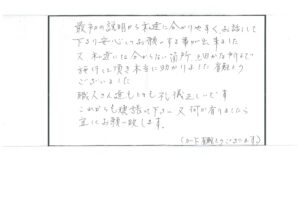 最初の説明から私達に分かりやすくお話して
下さり安心してお願いする事が出来ました
又私達には分からない箇所
施工して頂き本当に助かりました 有難う
ございました
職人さん達もとても礼儀正しいです
これからも 又何か有りましたら
宜にお願い致します。
(カード有難うございます。)